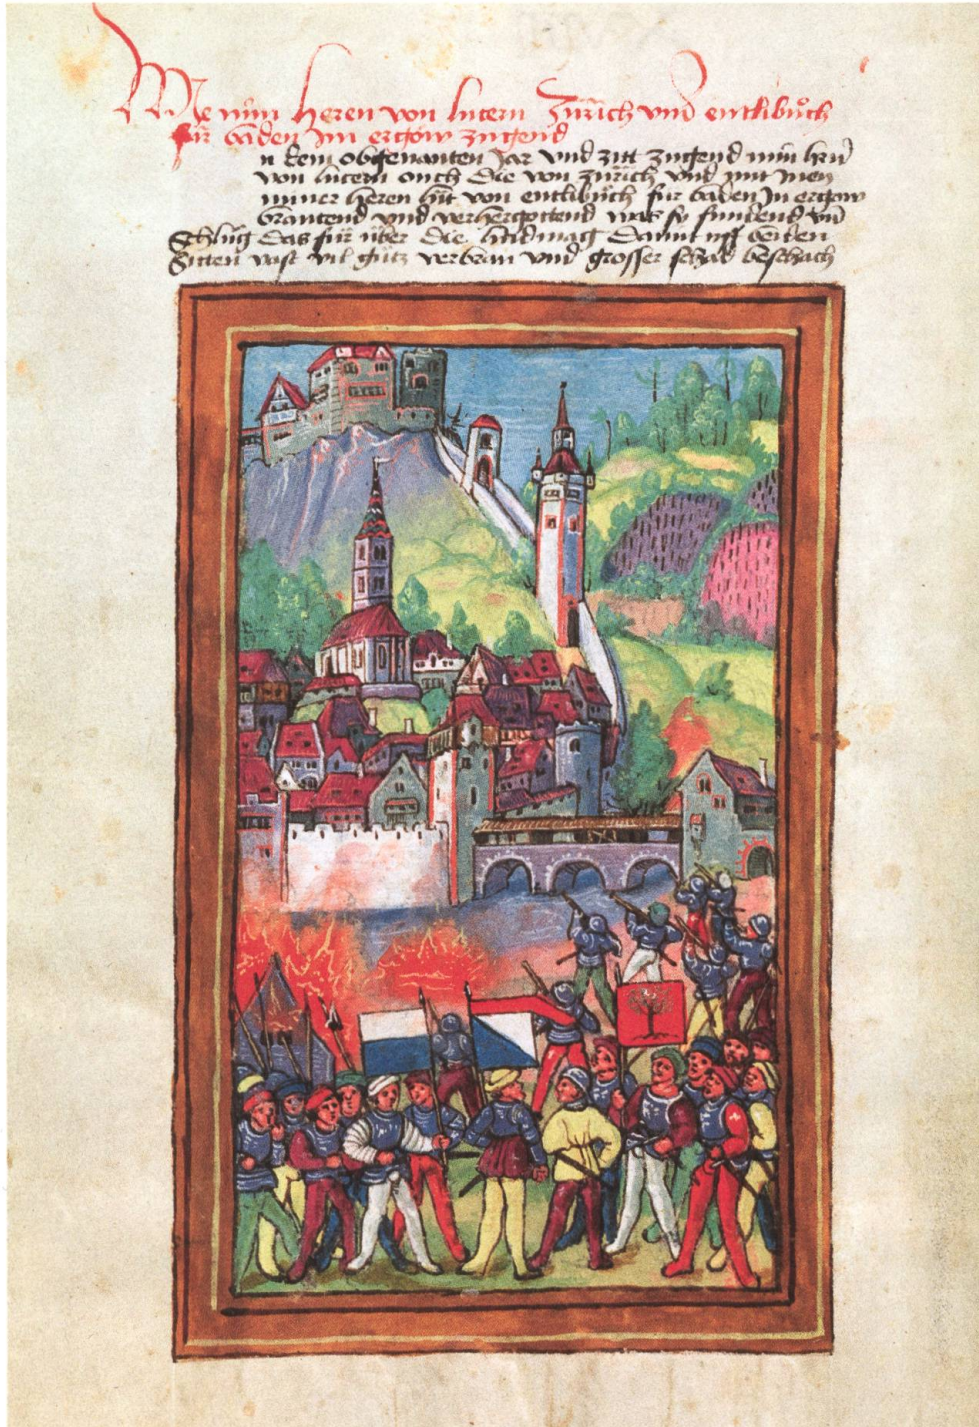 Wie min heren von lucern Zürich und entlibuoch
für baden im ergöw zugend
n dem obgenanten Jar und zitt zugend min hrn
von lucern ouch die von zürich und mit inen
miner heren lüt von entlibuoch für baden Jn ergöw
brantend und verhergottend was sy fundend
schlug das für über die lindmag damit uff beiden
Sitten vast vil guotz verbran und grosser schad beschach